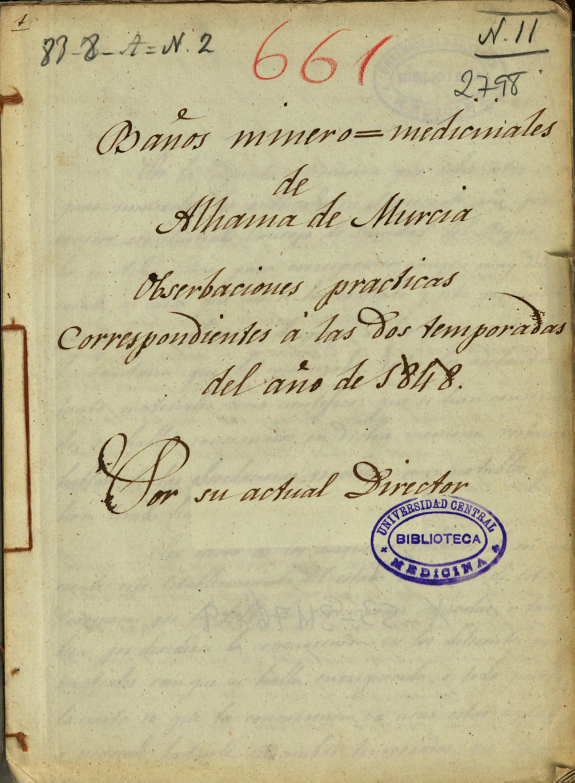 1
83-8-A=N.2
661
N. 11
2798
Baños minero=medicinales
de
Alhama de Murcia
Obserbaciones practicas
Correspondientes á las dos temporadas
del año de 1848.
Por su actual Director
UNIVERSIDAD CENTRAL
BIBLIOTECA
MEDICINA